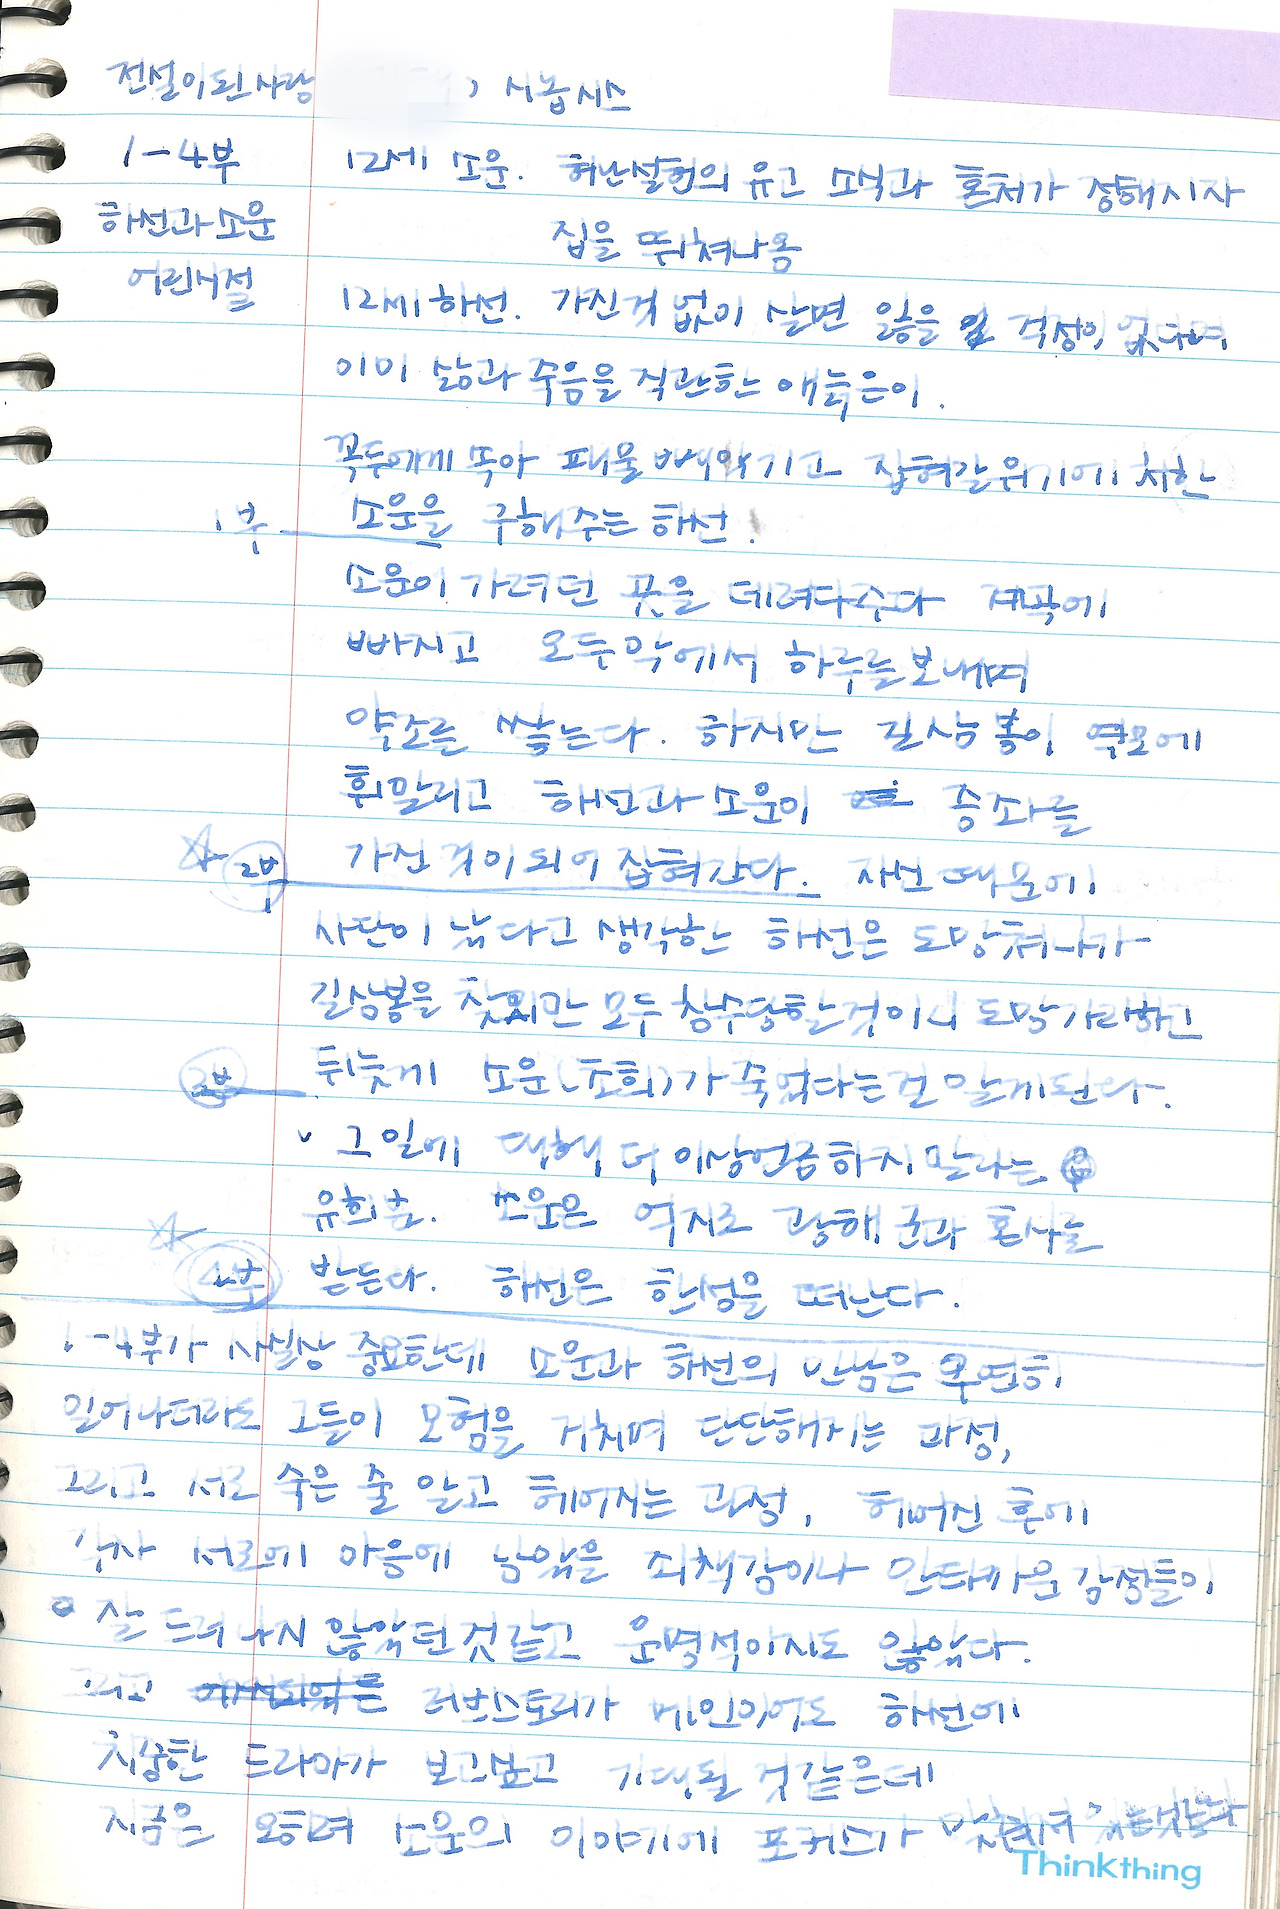 전설이 된 사랑 , 시놉시스
1-4부 12세 소운. 허난설헌의 유고 소식과 혼처가 정해시자
하선과 소운 집을 뛰쳐나옴
어린시절
12세 하선. 가진것 없이 살면 잃을 걱정이 없다며
이미 삶과 죽음을 직관한 애늙은이.
꼭두에게 속아 패물 빼앗기고 잡혀갈 위기에 처한
1부 소운을 구해주는 하선.
소운이 가려던 곳을 데려다주다 계곡에
빠지고 오두막에서 하루를 보내며
약조를 맺는다. 하지만 길삼봉이 역모에
휘말리고 하선과 소운이 증좌를
2부 가진 것이 되어 잡혀간다. 자신 때문에
사단이 났다고 생각하는 하선은 도망쳐나가
길삼봉을 찾지만 모두 참수당할것이니 도망가라하고
3부 뒤늦게 소운(초희)가 죽었다는걸 알게된다.
그 일에 대해 더 이상 언급하지 말라는
유희춘. 소운은 억지로 광해군과 혼사를
4부 받는다. 하선은 한성을 떠난다.
1-4부가 사실상 중요한데 소운과 하선의 만남은 우연히
일어나더라도 그들이 모험을 거치며 단단해지는 과정,
그리고 서로 죽은 줄 알고 헤어지는 과정, 헤어진 후에
각자 서로에 마음에 남았을 죄책감이나 안타까운 감정들이
잘 드러나지 않았던것 같고 운명적이지도 않았다.
그리고 러브스토리가 메인이어도 하선에
치중한 드라마가 보고싶고 기대될 것 같은데
지금은 오히려 소운의 이야기에 포커스가 맞춰져 있는것같다
Thinkthing